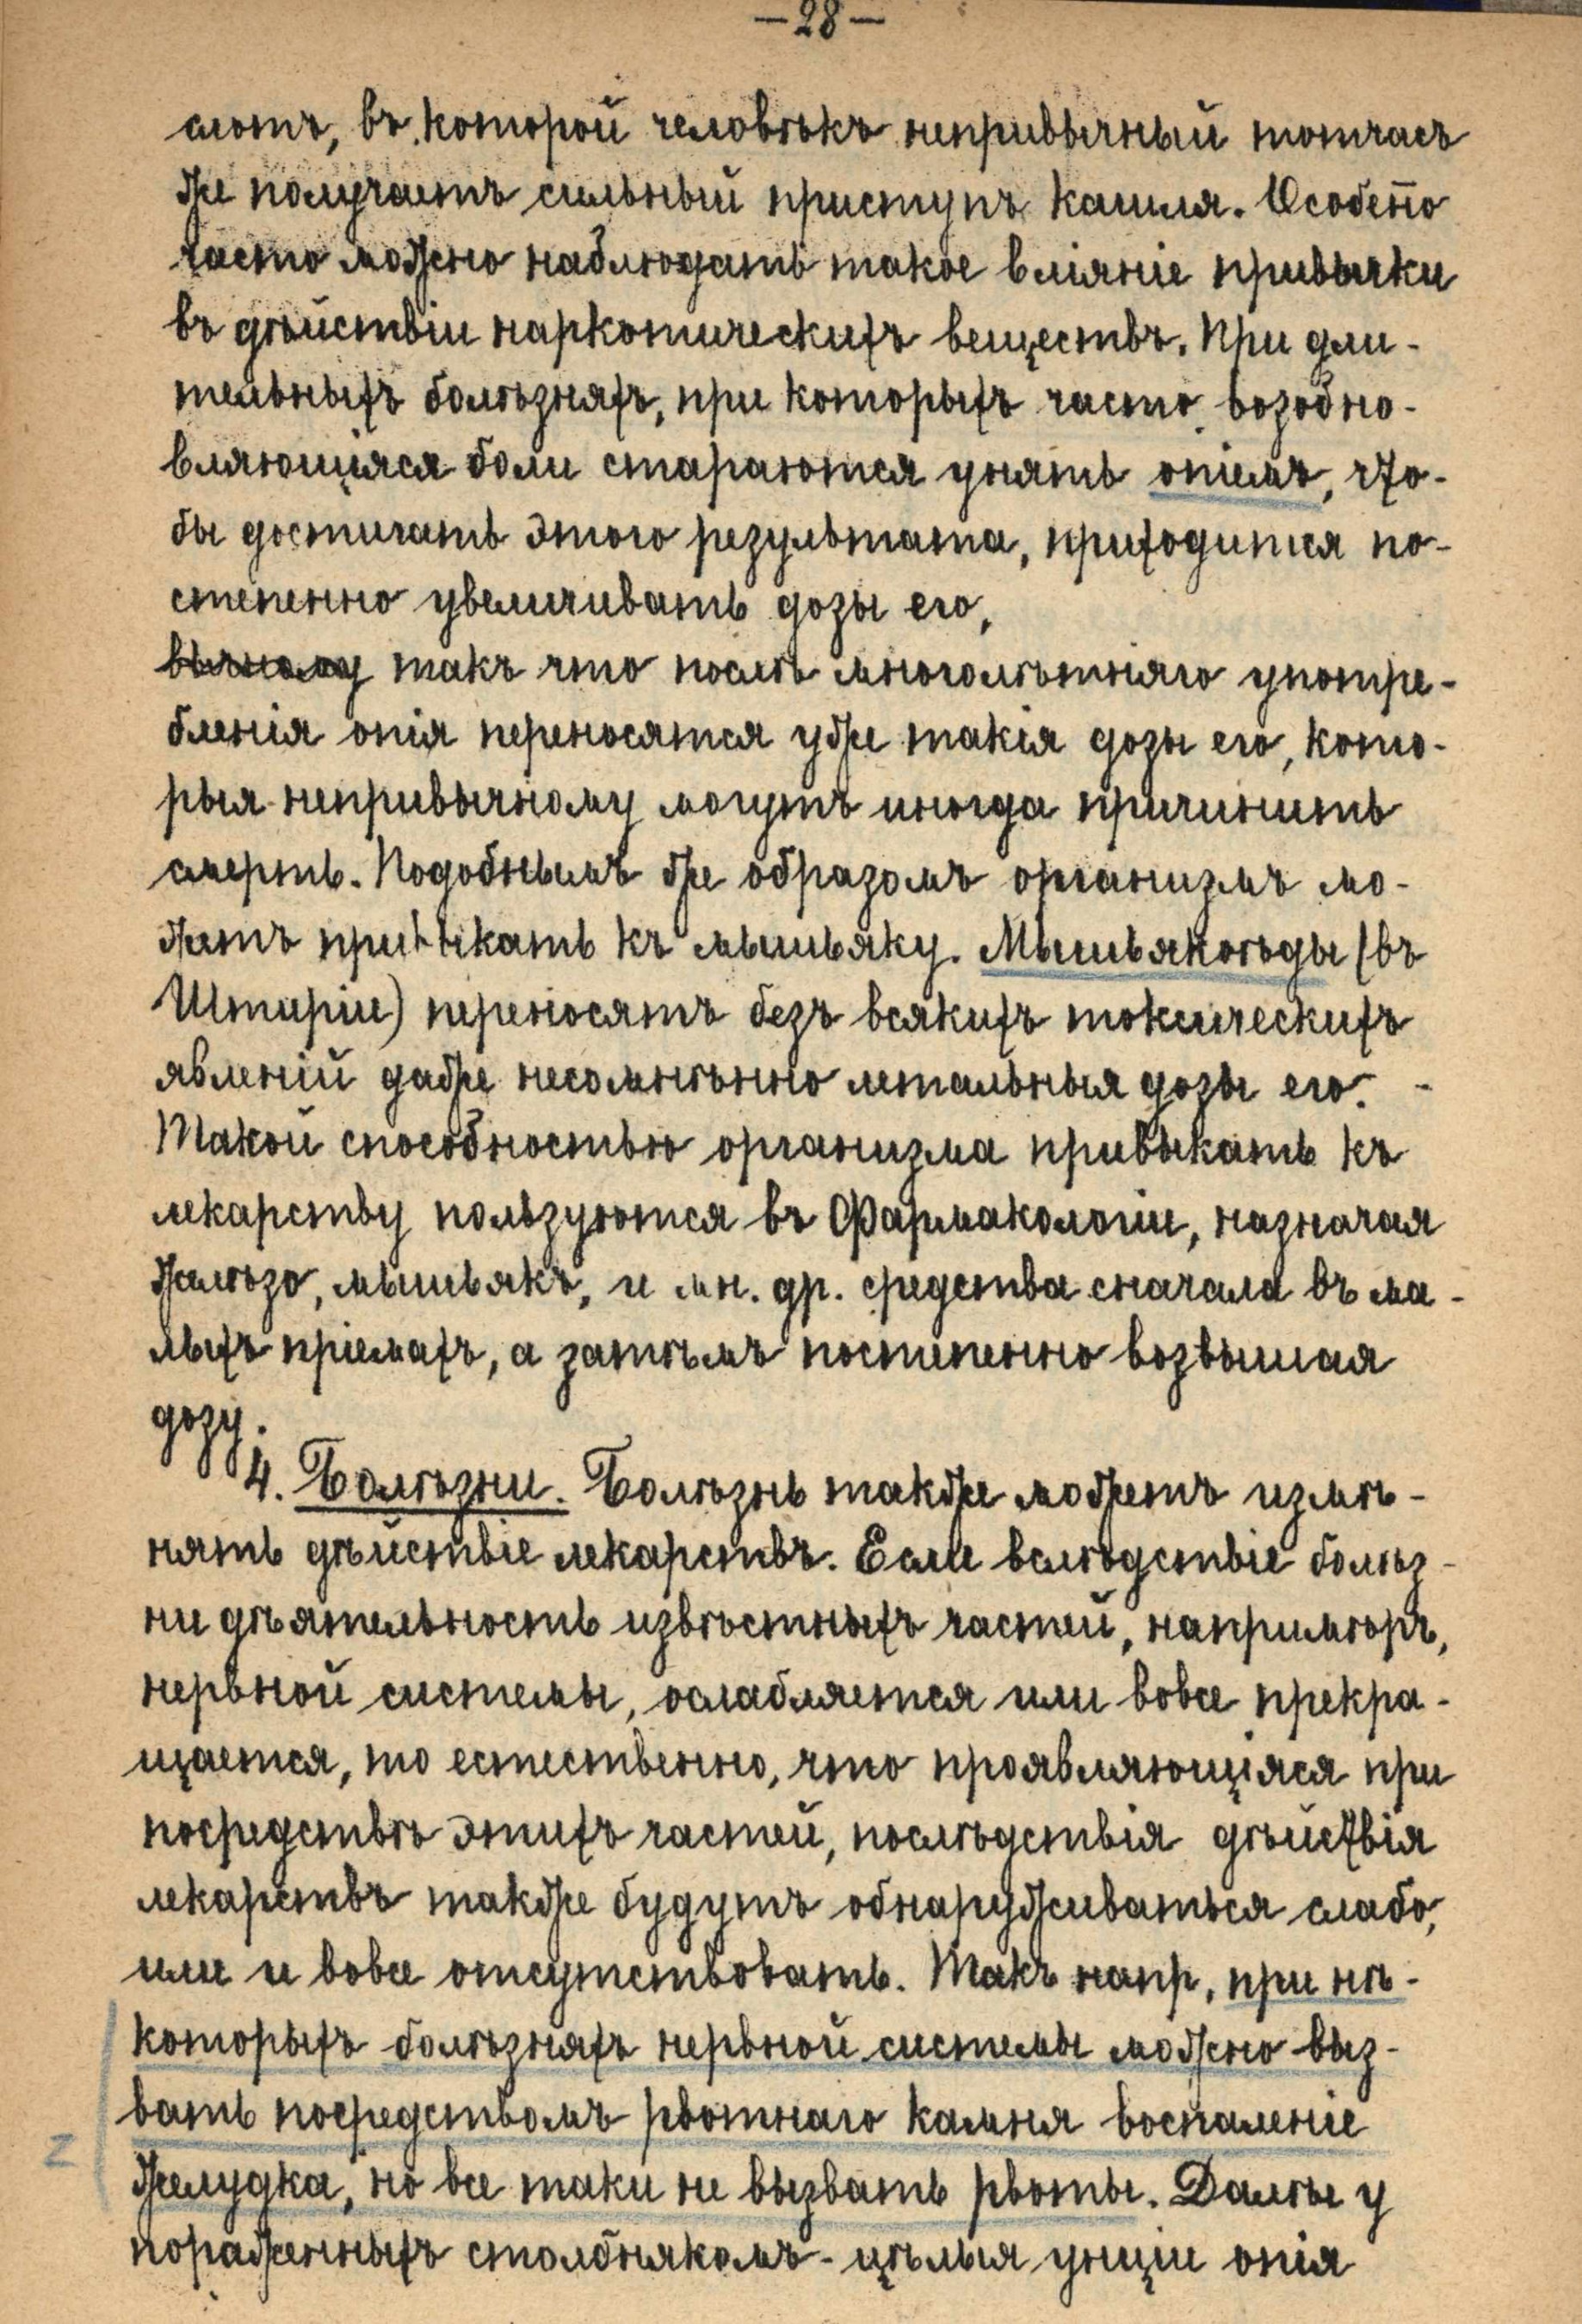 —28—
слотъ, въ которой человѣкъ непривычный тотчасъ
же получаетъ сильный приступъ кашля. Особен̄о
часто можно наблюдать такое вліяніе привычки
въ дѣйствіи наркотическихъ веществъ. При дли-
тельныхъ болѣзняхъ, при которыхъ часто возобно-
вляющіяся боли стараются унять опіемъ, что-
бы достигать этого результата, приходится по-
степенно увеличивать дозы его,
такъ что послѣ многолѣтняго употре-
бленія опія переносятся уже такія дозы его, кото-
рыя непривычному могутъ иногда причинить
смерть. Подобнымъ же образомъ организмъ мо-
жетъ привыкать къ мышьяку. Мышьякоѣды (въ
Штиріи) переносятъ безъ всякихъ токсическихъ
явленій даже несомнѣнно летальныя дозы его. -
Такой способностью организма привыкать къ
лекарству пользуются въ Фармакологіи, назначая
желѣзо, мышьякъ, и мн. др. средства сначала въ ма-
лыхъ пріемахъ, а затѣмъ постепенно возвышая
дозу.
4. Болѣзни. Болѣзнь также можетъ измѣ-
нять дѣйствіе лекарствъ. Если вслѣдствіе болѣз-
ни дѣятельность извѣстныхъ частей, напримѣръ,
нервной системы, ослабляется или вовсе прекра-
щается, то естественно, что проявляющіяся при
посредствѣ этихъ частей, послѣдствія дѣйствія
лекарствъ также будутъ обнаруживаться слабо,
или и вовсе отсутствовать. Такъ напр, при нѣ-
которыхъ болѣзняхъ нервной системы можно выз-
вать посредствомъ рвотнаго камня воспаленіе
желудка, но все таки не вызвать рвоты. Далѣе у
пораженныхъ столбнякомъ - цѣлыя унціи опія